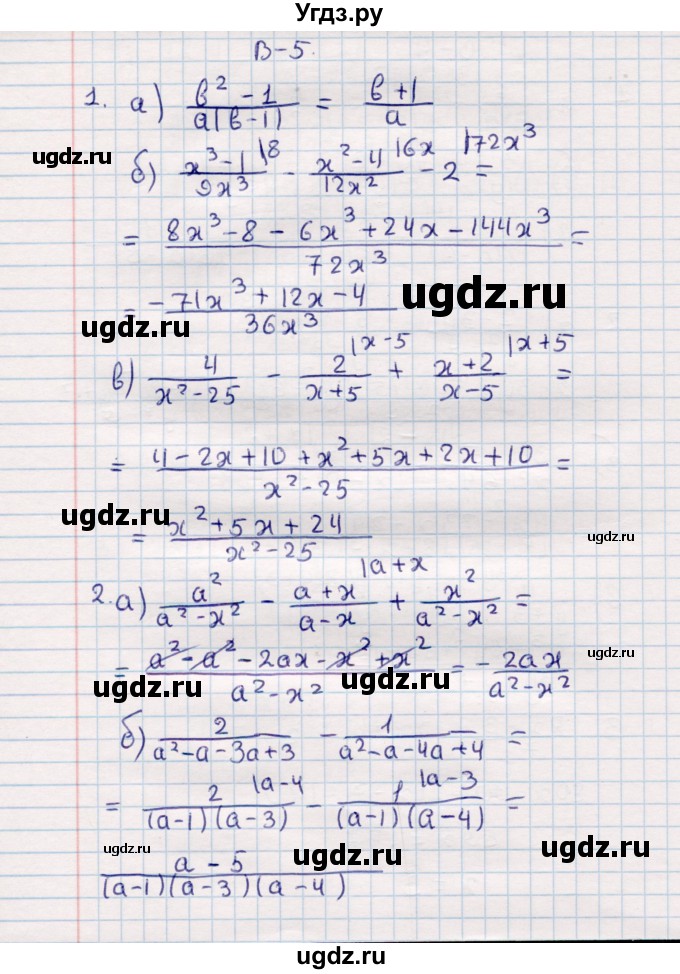 Угдз.ру
В-5.
1. а) (в² - 1)/(а(в-1)) = (в+1)/а
б) (x³-1)/(9x³) |8 - (x²-4)/(12x²) |6x - 2 |72x³ =
= (8x³-8 - 6x³+24x-144x³)/(72x³) =
= (-71x³+12x-4)/(36x³)
ugdz.ru
ugdz.ru
в) 4/(x²-25) - 2/(x+5) |x-5 + (x+2)/(x-5) |x+5 =
= (4-2x+10+x²+5x+2x+10)/(x²-25) =
ugdz.ru
= (x²+5x+24)/(x²-25)
ugdz.ru
2. а) a²/(a²-x²) - (a+x)/(a-x) |a+x + x²/(a²-x²) =
= (a²-a²-2ax-x²+x²)/(a²-x²) = -2ax/(a²-x²)
ugdz.ru
ugdz.ru
ugdz.ru
б) 2/(a²-a-3a+3) - 1/(a²-a-4a+4) =
= 2/((a-1)(a-3)) |a-4 - 1/((a-1)(a-4)) |a-3 =
ugdz.ru
ugdz.ru
ugdz.ru
(a-5)/((a-1)(a-3)(a-4))
ugdz.ru